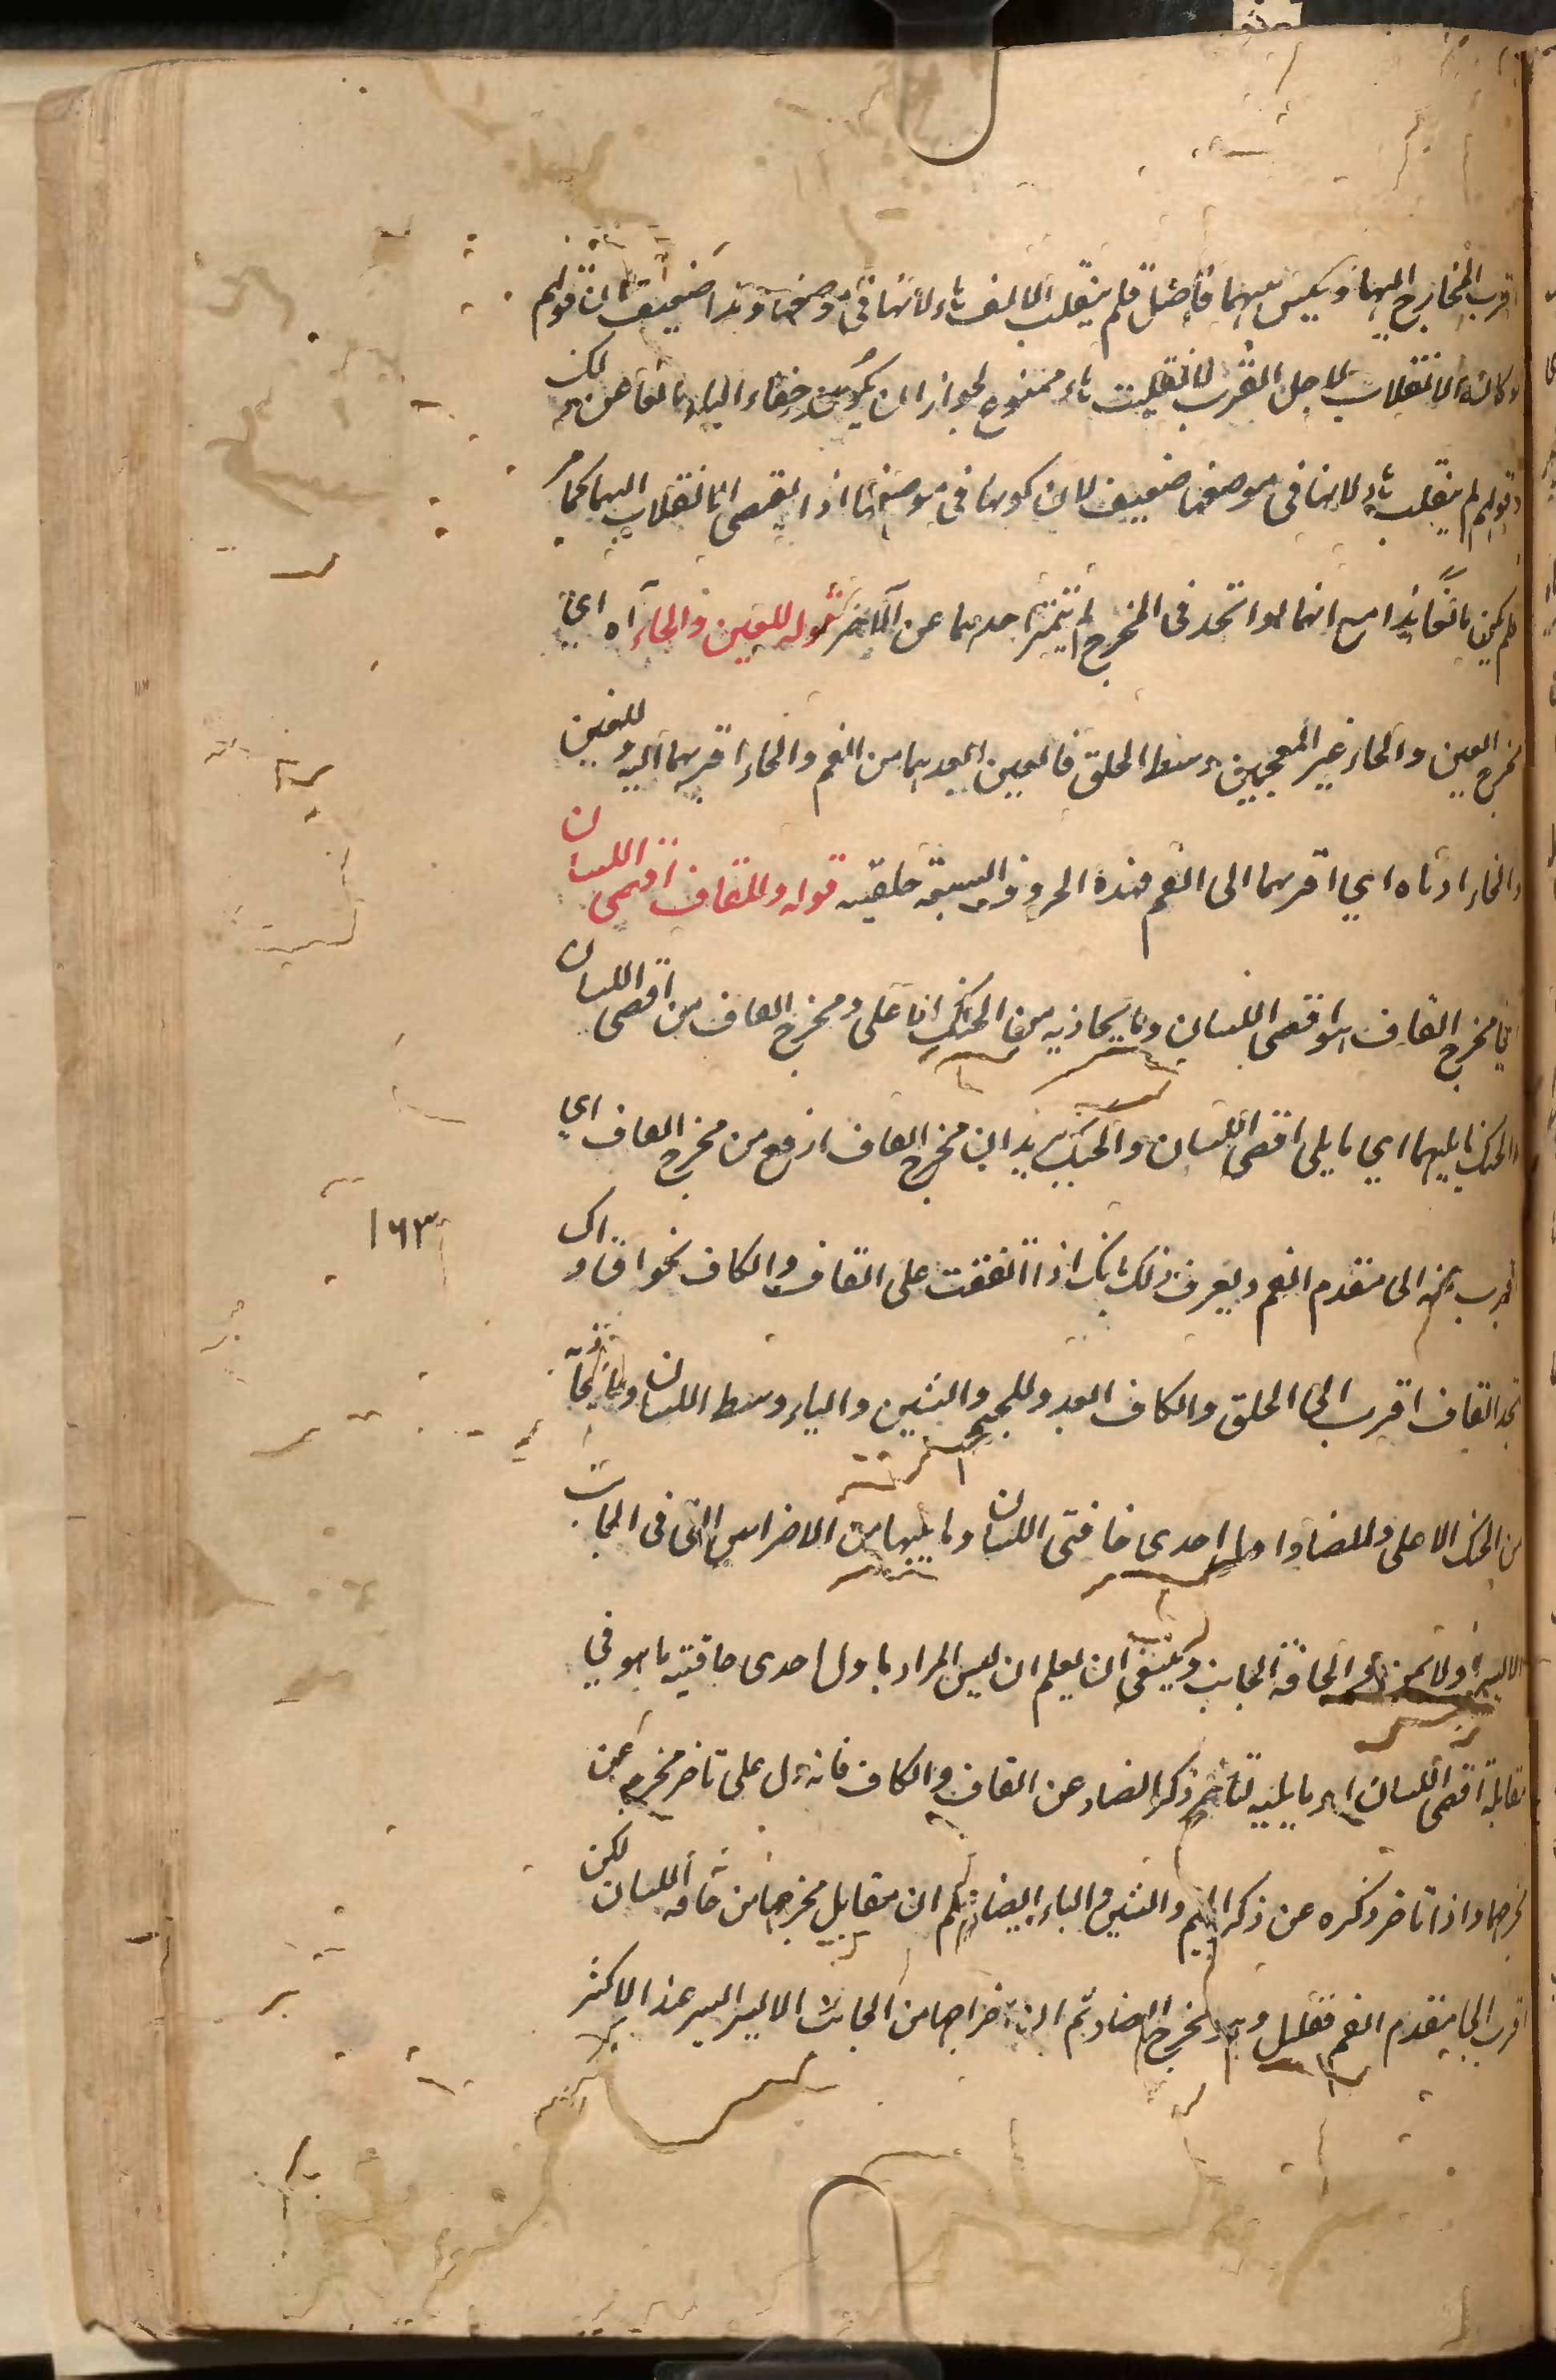 اقرب المخارج اليها وليس بينهما فاصل فلم ينقلب الالف هاء لانها في موضعها وهذا ضعيف لان قولهم
لو كان الانقلاب لاجل القرب لانقلبت هاء ممنوع لجواز ان يكون خفاء الهاء مانعا عنه لكن
وقولهم لم ينقلب هاء لانها في موضعها ضعيف لان كونها في موضعها اذا اقتضى الانقلاب اليها كما مر
لم يكن مانعا هذا مع انهما لو اتحد في المخرج لم يتميز احدهما عن الآخر قوله للعين والحاء آه اي
مخرج العين والحاء غير المعجمتين وسط الحلق فالعين ابعدهما من الفم والحاء اقربهما اليه وللغين
والخاء ادناه اي اقربهما الى الفم فهذه الحروف السبعة حلقية قوله وللقاف اقصى اللسان
اي مخرج القاف هو اقصى اللسان وما يحاذيه من الحنك الاعلى ومخرج الكاف من اقصى اللسان
والحنك ما يليهما اي ما يلي اقصى اللسان والحنك يريد ان مخرج الكاف ارفع من مخرج القاف اي
اقرب منه الى مقدم الفم ويعرف ذلك بانك اذا وقفت على القاف والكاف نحو اق و اك
تجد القاف اقرب الى الحلق والكاف ابعد وللجيم والشين والياء وسط اللسان وما يحاذيه
من الحنك الاعلى وللضاد اول احدى حافتي اللسان وما يليها من الاضراس التي في الجانب
الايسر او الايمن والحافة الجانب وينبغي ان يعلم ان ليس المراد باول احدى حافتيه ما هو في
مقابلة اقصى اللسان او ما يليه لتاخير ذكر الضاد عن القاف والكاف فانه دل على تاخر مخرجه عن
مخرجهما واذا تاخر ذكره عن ذكر الجيم والشين والياء ايضا علم ان مقابل مخرجها من حافة اللسان لكن
اقرب الى مقدم الفم فقليل وهو مخرج الضاد ثم ان اخراجها من الجانب الايسر ايسر عند الاكثر
١٦٣